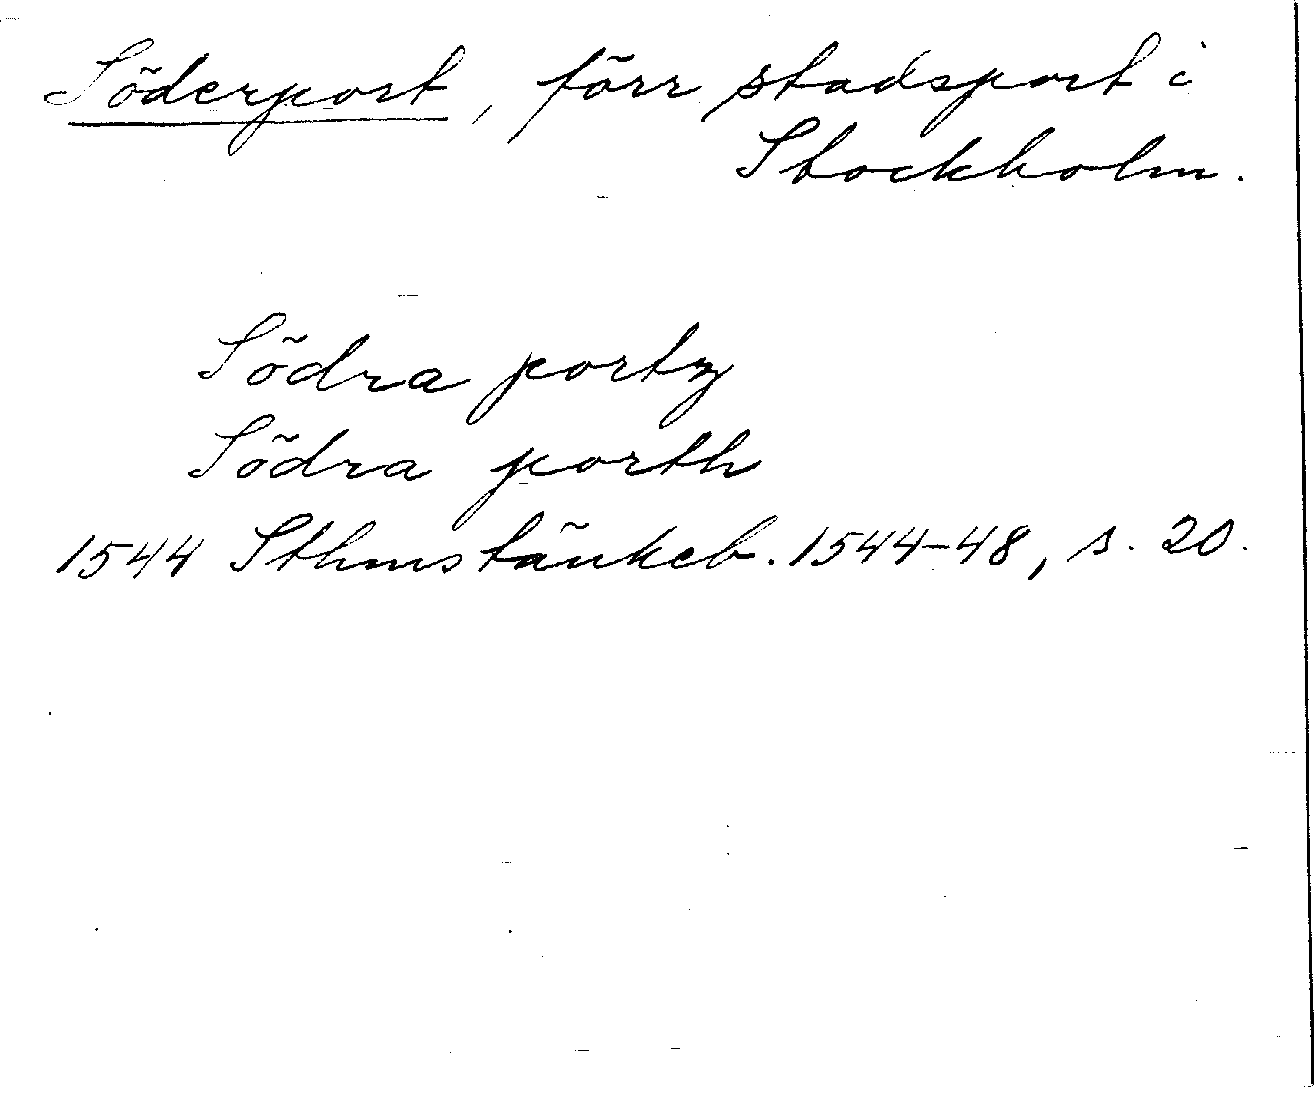 Söderport, förr stadsport i
Stockholm.
Södra portz
Södra porth
1544 Sthms tänkeb. 1544-48, s. 20.